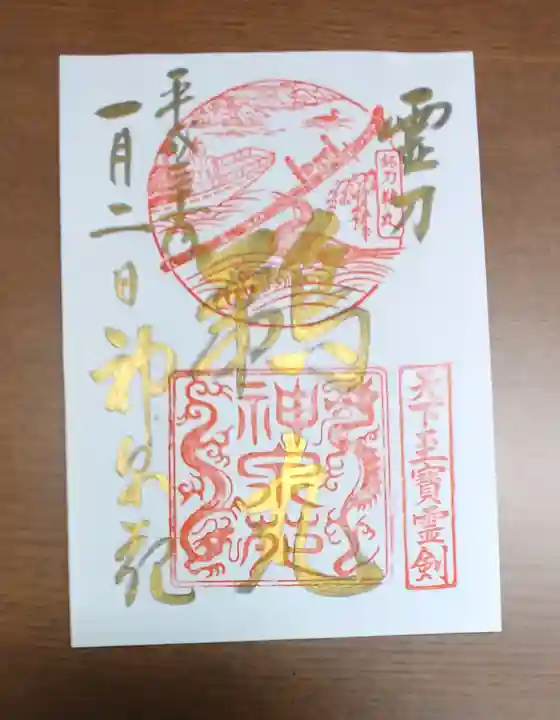 霊刀
鵜丸
銘刀鵜丸
天下至寶霊剣
神泉苑
平成三十年
一月二日
神泉苑